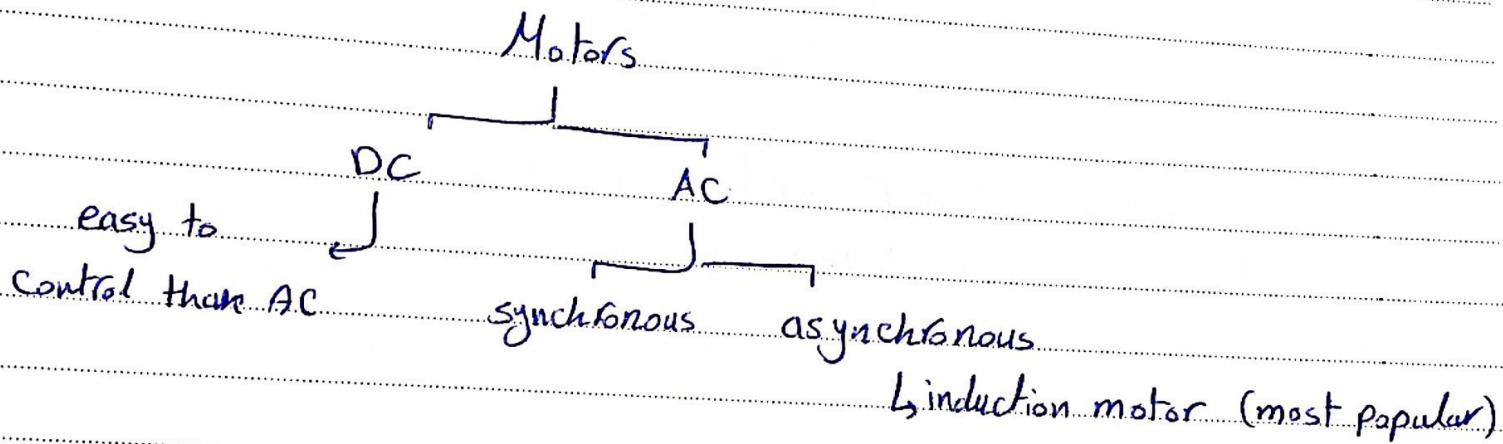 Motors
DC
AC
easy to
control than AC
synchronous
asynchronous
↳ induction motor (most popular)